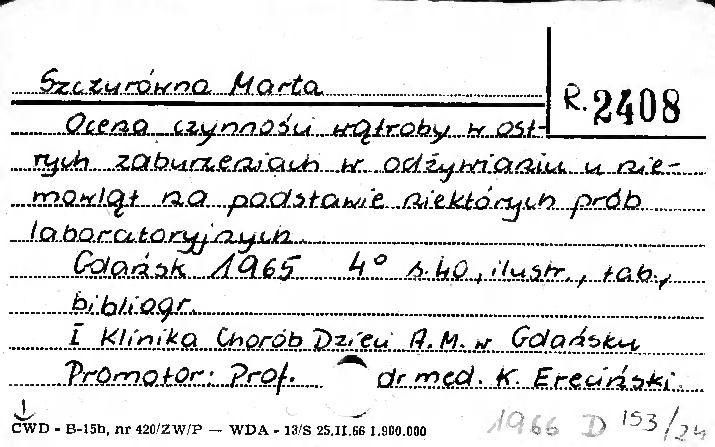 Szczurówna Marta
R. 2408
Ocena czynności wątroby w ost-
rych zaburzeniach w odżywianiu u nie-
mowląt na podstawie niektórych prób
laboratoryjnych.
Gdańsk 1965 4° s. 40, ilustr., tab.,
bibliogr.
I Klinika Chorób Dzieci A.M. w Gdańsku
Promotor: Prof. dr med. K. Ereciński.
CWD - B-15b, nr 420/ZW/P — WDA - 13/S 25.II.66 1.900.000
1966 D 153/24